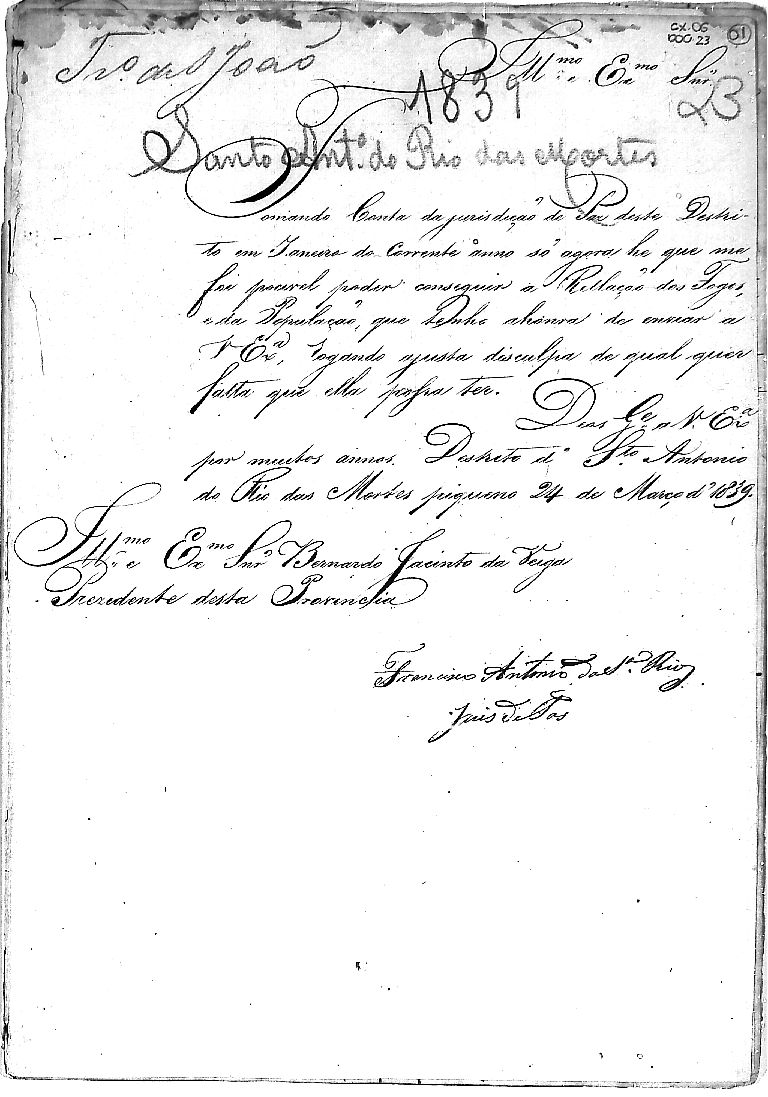 CX-06
DOC-23
61
Tr.º de S João
Ill.mo e Ex.mo Snr.
1839
23
Santo Ant.º do Rio das Mortes
Tomando Conta da jurisdição de Paz deste Destri-
to em Janeiro do Corrente anno só agora he que me
foi pocivel poder conseguir a Rellação dos Fogos,
e da População, que tenho ahonra de enviar a
V Ex.ª, rogando ajusta disculpa de qual quer
falta que ella possa ter.
Deos G.e a V. Ex.ª
por muitos annos. Destrito d' S.to Antonio
do Rio das Mortes piqueno 24 de Março d' 1839.
Ill.mo e Ex.mo Snr Bernardo Jacinto da Veiga
Prezedente desta Provincia
Francisco Antonio da S.ª Rios
Juis de Pas